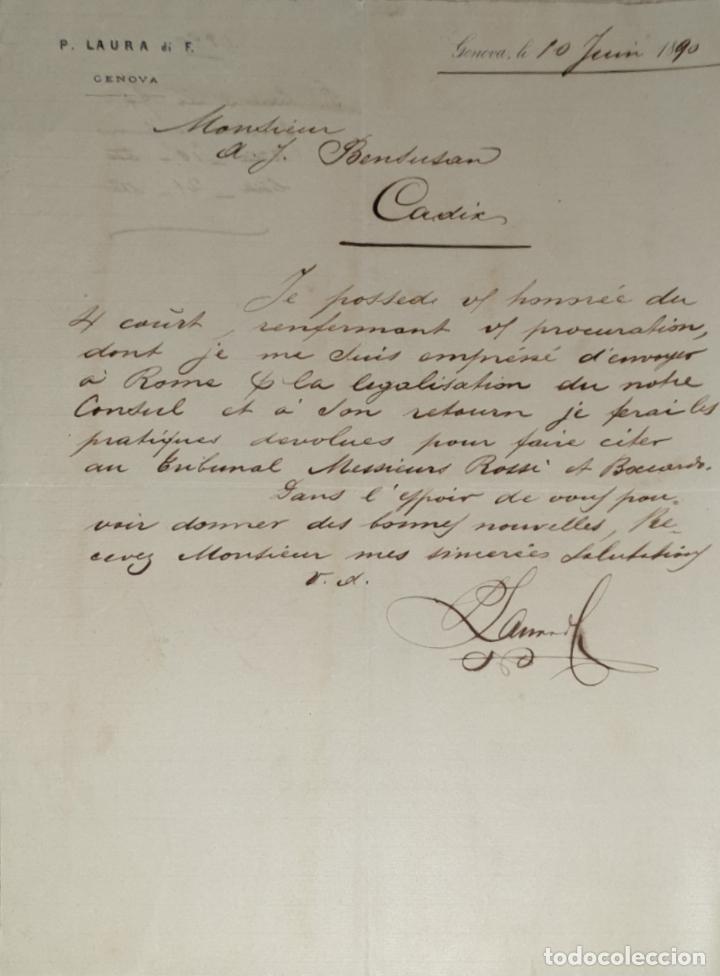 P. LAURA di F.
GENOVA
Genova, le 10 Juin 1890
Monsieur
A. J. Bensusan
Cadix
Je possede v/ honorée du
4 court, renfermant v/ procuration,
dont je me suis empressé d'envoyer
à Rome p la legalisation du notre
Consul et à son retourn je ferai les
pratiques devolues pour faire citer
au Tribunal Messieurs Rossi et Boccardo.
Dans l'espoir de vous pou-
voir donner des bonnes nouvelles, Re-
cevez Monsieur mes sincerès salutations
P Laura di F
todocoleccion